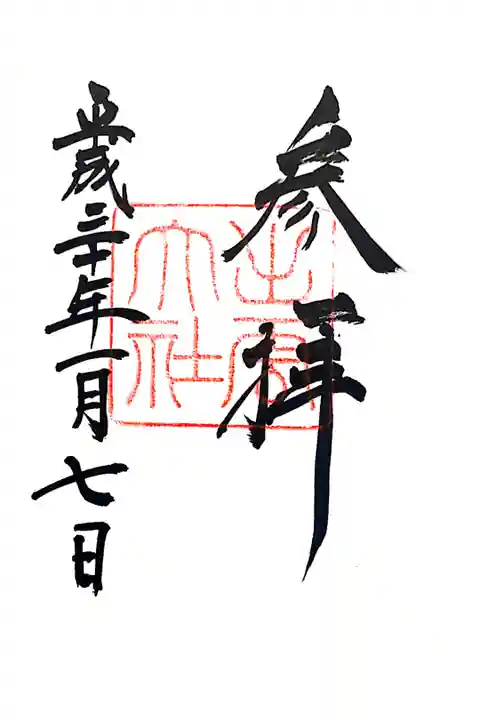 参拝
出雲大社
平成三十年一月七日